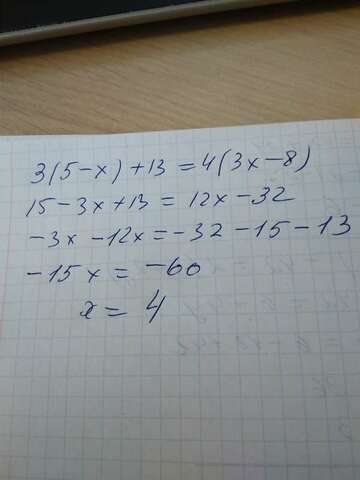 3(5-x)+13=4(3x-8)
15-3x+13=12x-32
-3x-12x=-32-15-13
-15x=-60
x=4